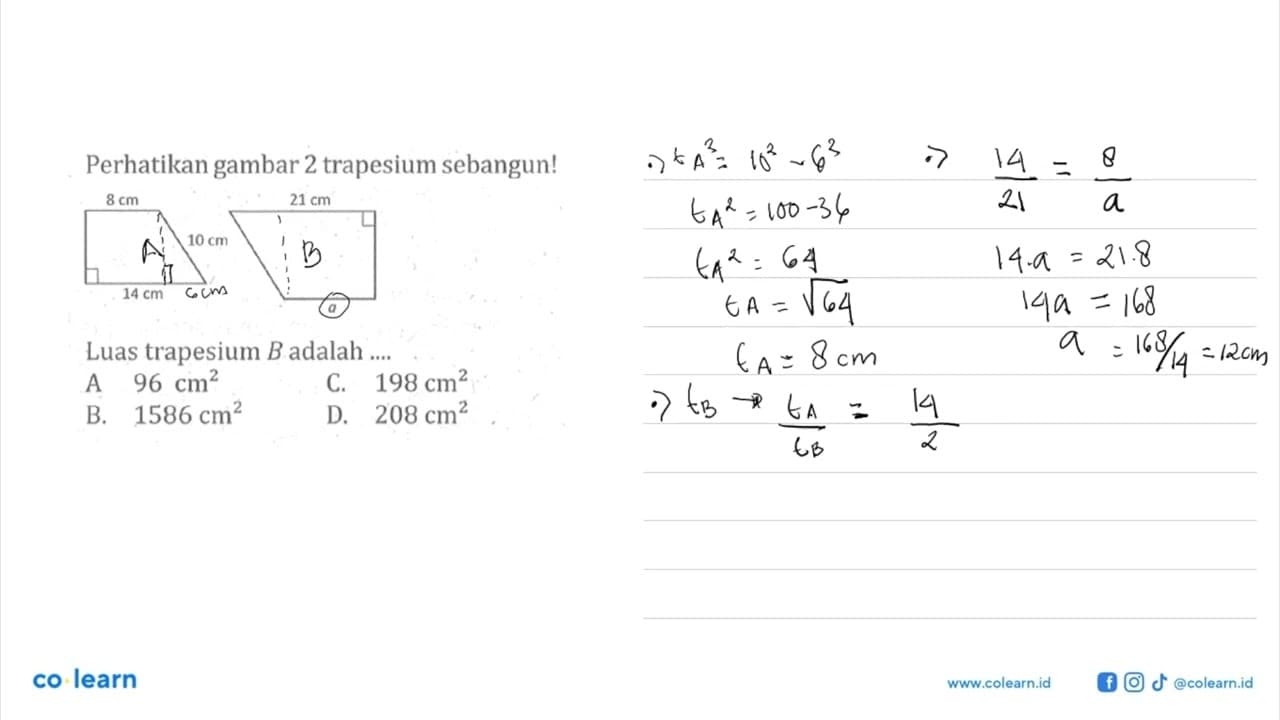 Perhatikan gambar 2 trapesium sebangun!
8 cm
21 cm
10 cm
A
B
14 cm
6 cm
a
Luas trapesium B adalah ....
A 96 cm²
C. 198 cm²
B. 1586 cm²
D. 208 cm²
•) tA² = 10² - 6²
tA² = 100 - 36
tA² = 64
tA = √64
tA = 8 cm
•) tB → tA/tB = 14/2
•) 14/21 = 8/a
14.a = 21.8
14a = 168
a = 168/14 = 12 cm
co learn
www.colearn.id
@colearn.id